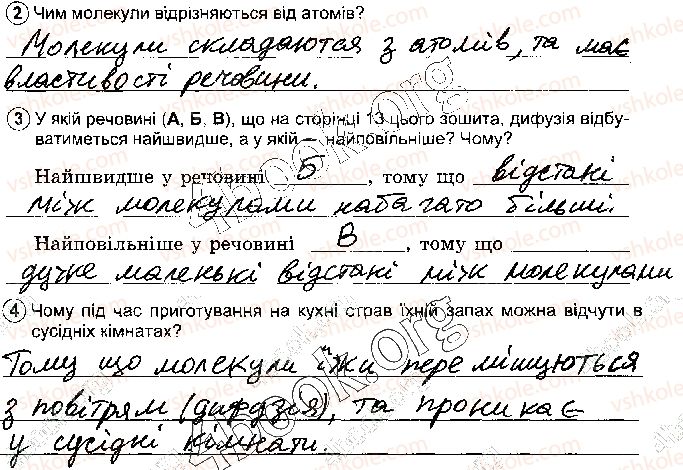 2 Чим молекули відрізняються від атомів?
Молекули складаются з атомів, та має
властивості речовини.
3 У якій речовині (А, Б, В), що на сторінці 13 цього зошита, дифузія відбу-
ватиметься найшвидше, а у якій — найповільніше? Чому?
Найшвидше у речовині Б, тому що відстані
між молекулами набагато більші.
Найповільніше у речовині В, тому що
дуже маленькі відстані між молекулами
4 Чому під час приготування на кухні страв їхній запах можна відчути в
сусідніх кімнатах?
Тому що молекули їжи переміщуються
з повітрям (дифузія), та проникає
у сусідні кімнати.
4book.org
vshkole.com